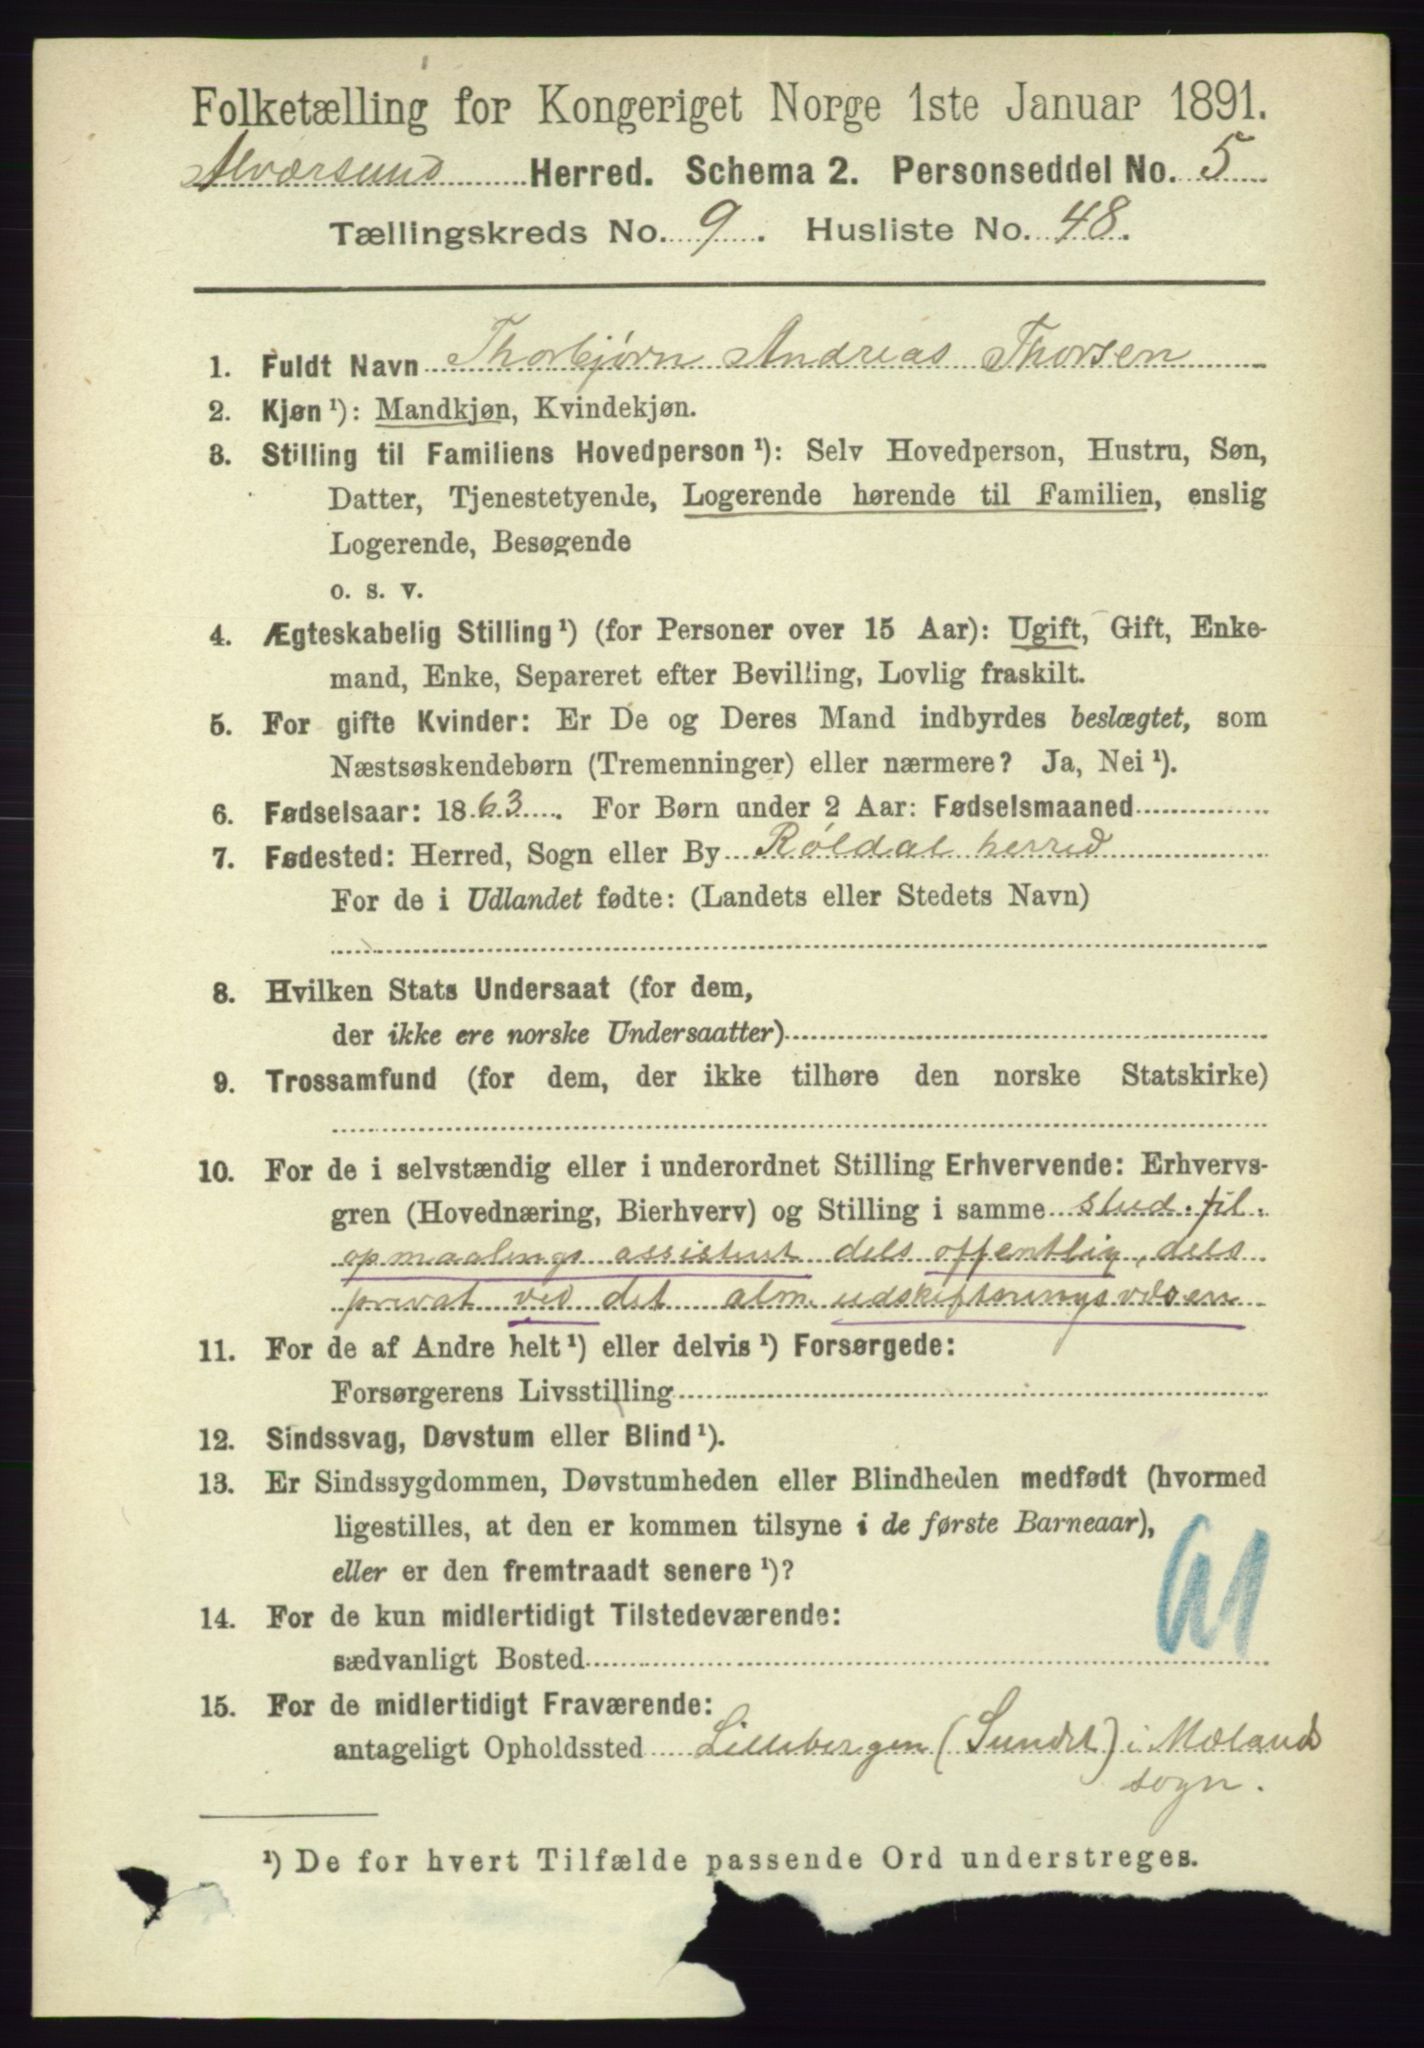 Folketælling for Kongeriget Norge 1ste Januar 1891.
Alværsund Herred. Schema 2. Personseddel No. 5
Tællingskreds No. 9. Husliste No. 48.
1. Fuldt Navn Thorbjørn Andreas Thorsen
2. Kjøn ¹): Mandkjøn, Kvindekjøn.
3. Stilling til Familiens Hovedperson ¹): Selv Hovedperson, Hustru, Søn,
Datter, Tjenestetyende, Logerende hørende til Familien, enslig
Logerende, Besøgende
o. s. v.
4. Ægteskabelig Stilling ¹) (for Personer over 15 Aar): Ugift, Gift, Enke-
mand, Enke, Separeret efter Bevilling, Lovlig fraskilt.
5. For gifte Kvinder: Er De og Deres Mand indbyrdes beslægtet, som
Næstsøskendebørn (Tremenninger) eller nærmere? Ja, Nei ¹).
6. Fødselsaar: 1863. For Børn under 2 Aar: Fødselsmaaned
7. Fødested: Herred, Sogn eller By Røldal herred
For de i Udlandet fødte: (Landets eller Stedets Navn)
8. Hvilken Stats Undersaat (for dem,
der ikke ere norske Undersaatter)
9. Trossamfund (for dem, der ikke tilhøre den norske Statskirke)
10. For de i selvstændig eller i underordnet Stilling Erhvervende: Erhvervs-
gren (Hovednæring, Bierhverv) og Stilling i samme stud. fil.
opmaalings assistent dels offentlig, dels
privat ved det alm. udskiftningsvæsen
11. For de af Andre helt ¹) eller delvis ¹) Forsørgede:
Forsørgerens Livsstilling
12. Sindssvag, Døvstum eller Blind ¹).
13. Er Sindssygdommen, Døvstumheden eller Blindheden medfødt (hvormed
ligestilles, at den er kommen tilsyne i de første Barneaar),
eller er den fremtraadt senere ¹)?
14. For de kun midlertidigt Tilstedeværende:
sædvanligt Bosted
15. For de midlertidigt Fraværende:
antageligt Opholdssted Lillebergen (Sundet) i Mæland
sogn.
¹) De for hvert Tilfælde passende Ord understreges.